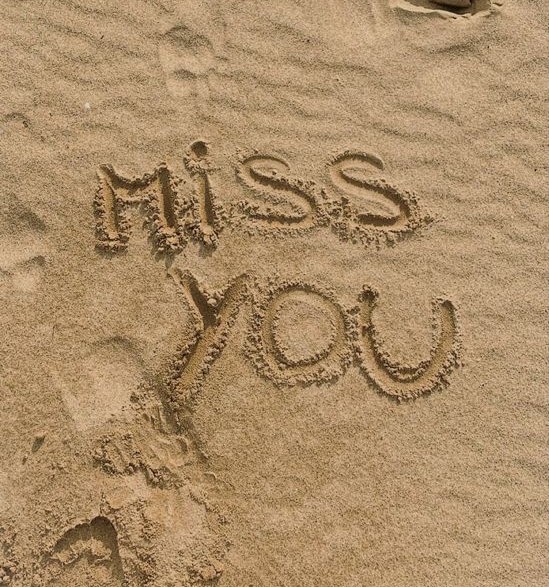 MiSS
YOU